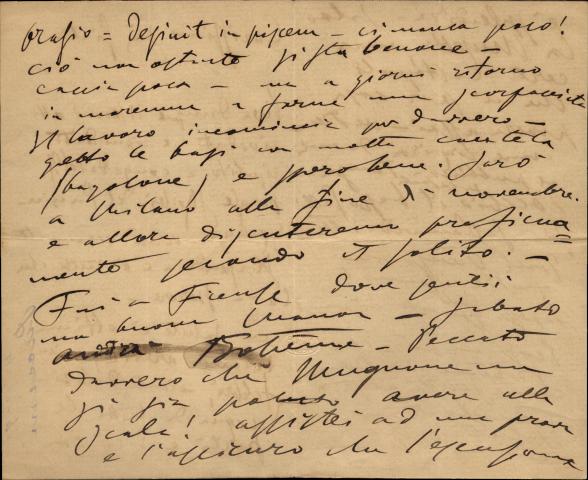 orazio = desinit in piscem – ci manca poco!
ciò non ostante si sta benone –
caccia poca – ma a giorni ritorno
in maremma a farne una scorpacciata
Il lavoro incomincia per davvero –
getto le basi con molta cautela
(bagolone) e spero bene. Sarò
a Milano alla fine di novembre.
e allora discuteremo proficua=
mente secondo il solito. –
Fui a Firenze dove sentii
una buona Manon – sabato
andrà Bohème – Peccato
davvero che Mugnone non
si sia potuto avere alla
Scala! assistei ad una prova
e t'assicuro che l'esecuzione